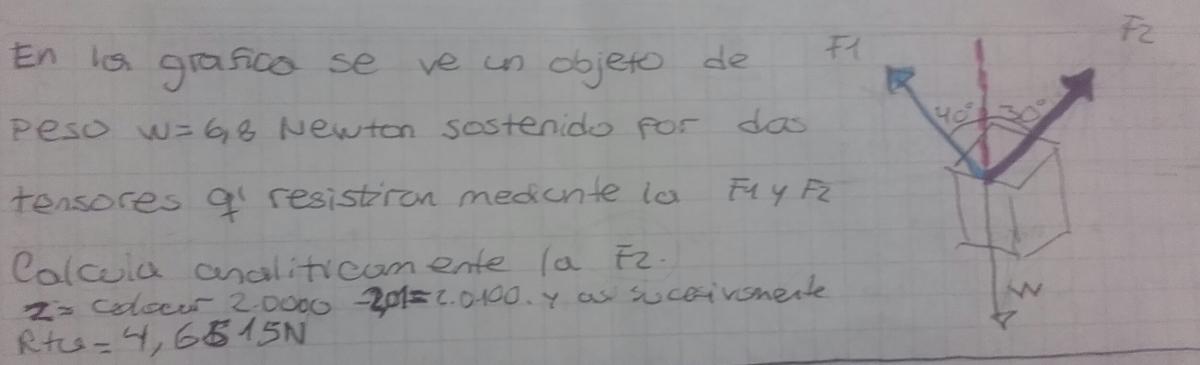 En la grafica se ve un objeto de
Peso W=6,8 Newton sostenido por dos
tensores q' resistiran mediante la F1 y F2
Calcula analiticamente la F2.
z= colocar 2.0000 2,01=2.0100. y asi sucesivamente
Rta=4,6515N
F1
F2
40° 30°
W